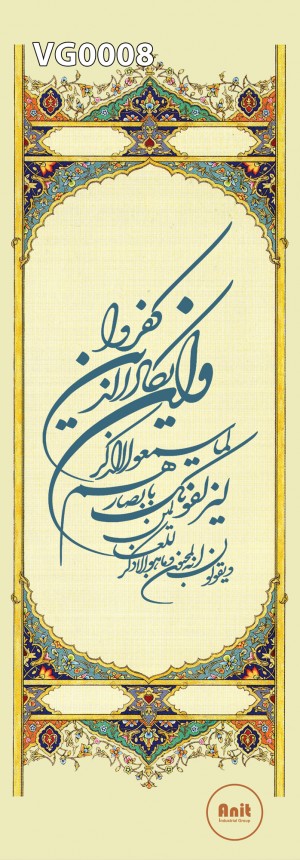 VG0008
وان یکاد الذین کفروا
لیزلقونک بابصارهم
لما سمعوا الذکر
ویقولون انه لمجنون
وما هو الا ذکر
للعالمین
Anit
Industrial Group